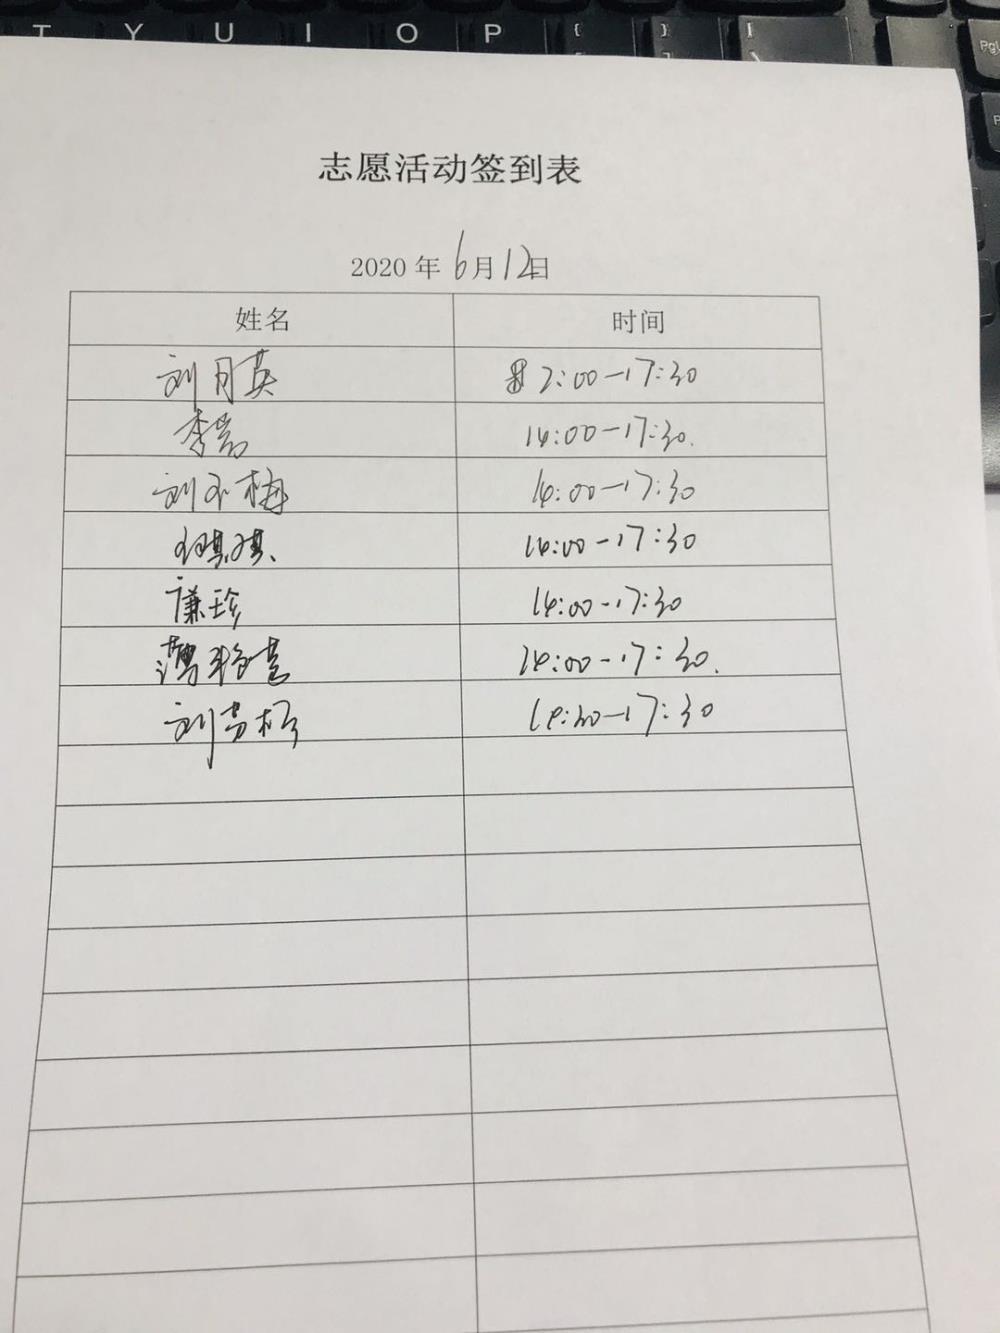 T Y U I O P { } |
[ ] \
PgU
P
志愿活动签到表
2020 年 6月12日
姓名 时间
刘月英 2:00-17:30
李岩 14:00-17:30.
刘不梅 14:00-17:30
14:00-17:30
廉珍 14:00-17:30
14:00-17:30.
刘 14:30-17:30